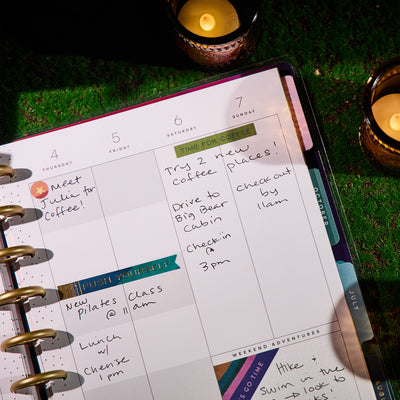 4
THURSDAY
5
FRIDAY
6
SATURDAY
7
SUNDAY
Meet
Julie for
Coffee!
PUSH YOURSELF
New Class
Pilates @ 11am
Lunch
w/
1pm
TIME FOR COFFEE
Try 2 new
Coffee places!
Drive to
Big Bear
Cabin
Check in
@
3pm
Check out
by
11am
WEEKEND ADVENTURES
LET'S GO TIME
Hike &
Swim in the
look to
OCTOBER
JULY